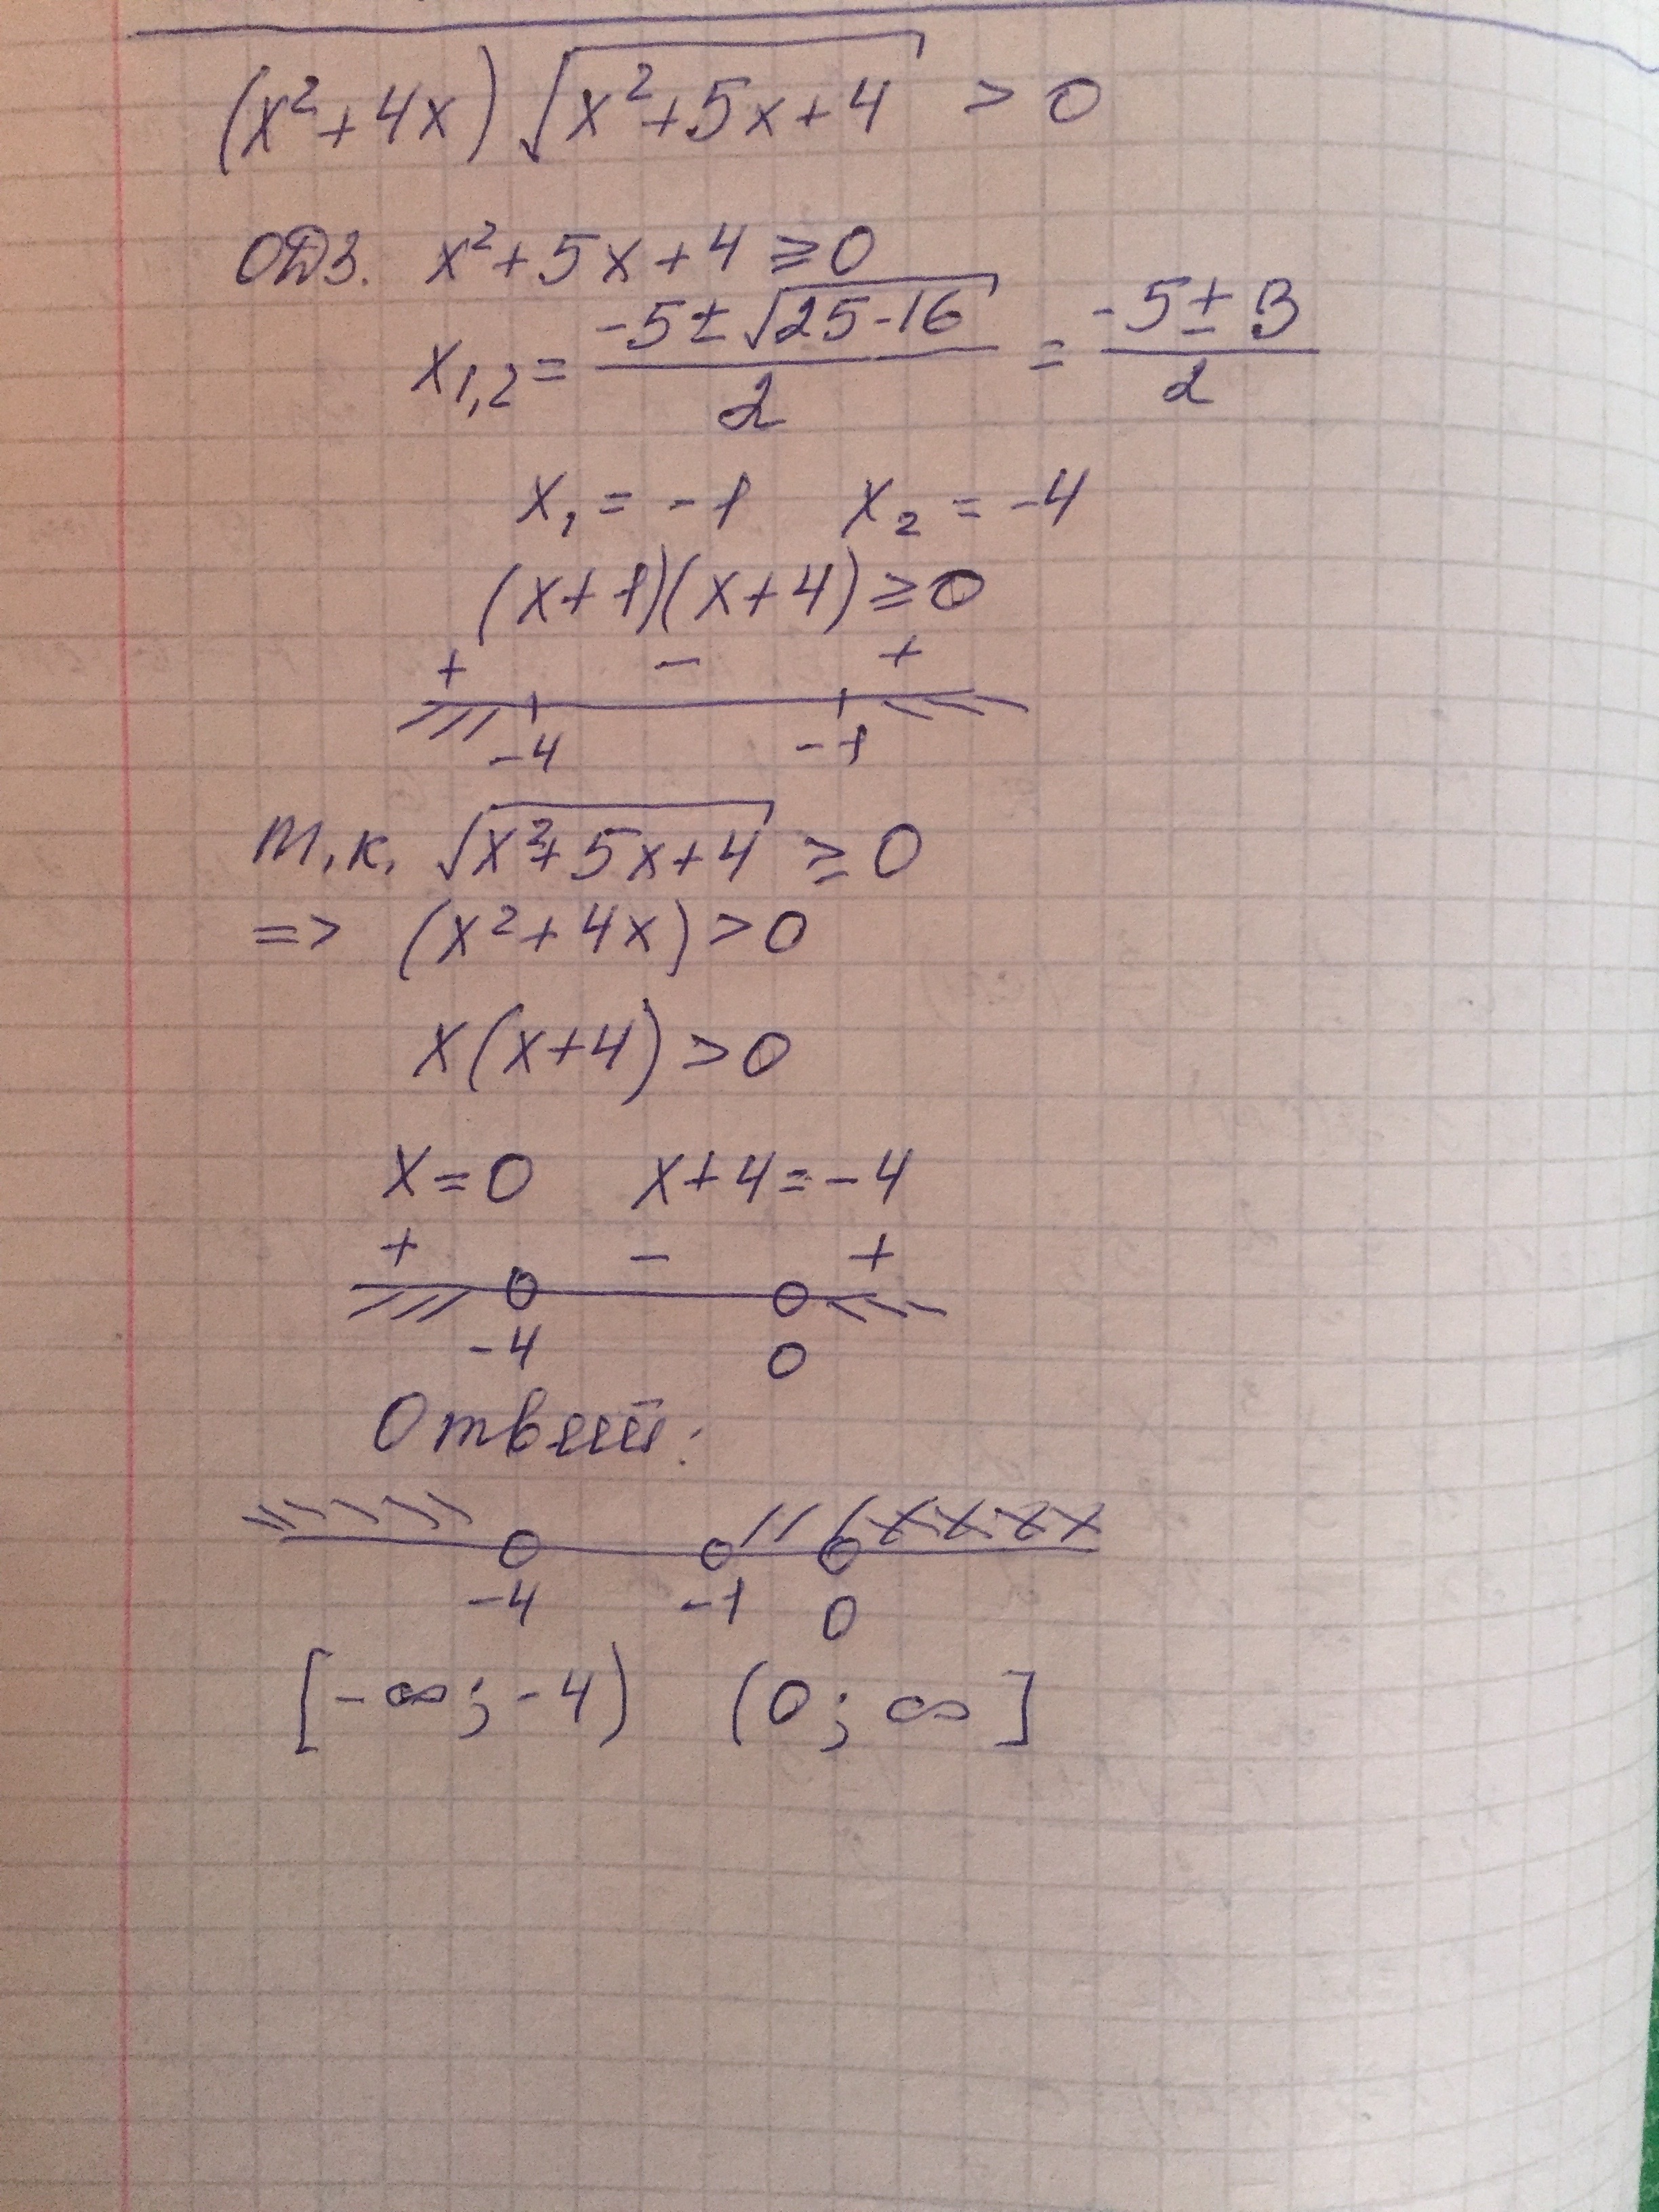 (x²+4x)√(x²+5x+4) > 0
ОДЗ. x²+5x+4 ≥ 0
x₁,₂ = (-5±√(25-16))/2 = (-5±3)/2
x₁ = -1 x₂ = -4
(x+1)(x+4) ≥ 0
+ - +
-4 -1
т.к. √(x²+5x+4) ≥ 0
=> (x²+4x) > 0
x(x+4) > 0
x=0 x+4=-4
+ - +
-4 0
Ответ:
-4 -1 0
[-∞; -4) (0; ∞]